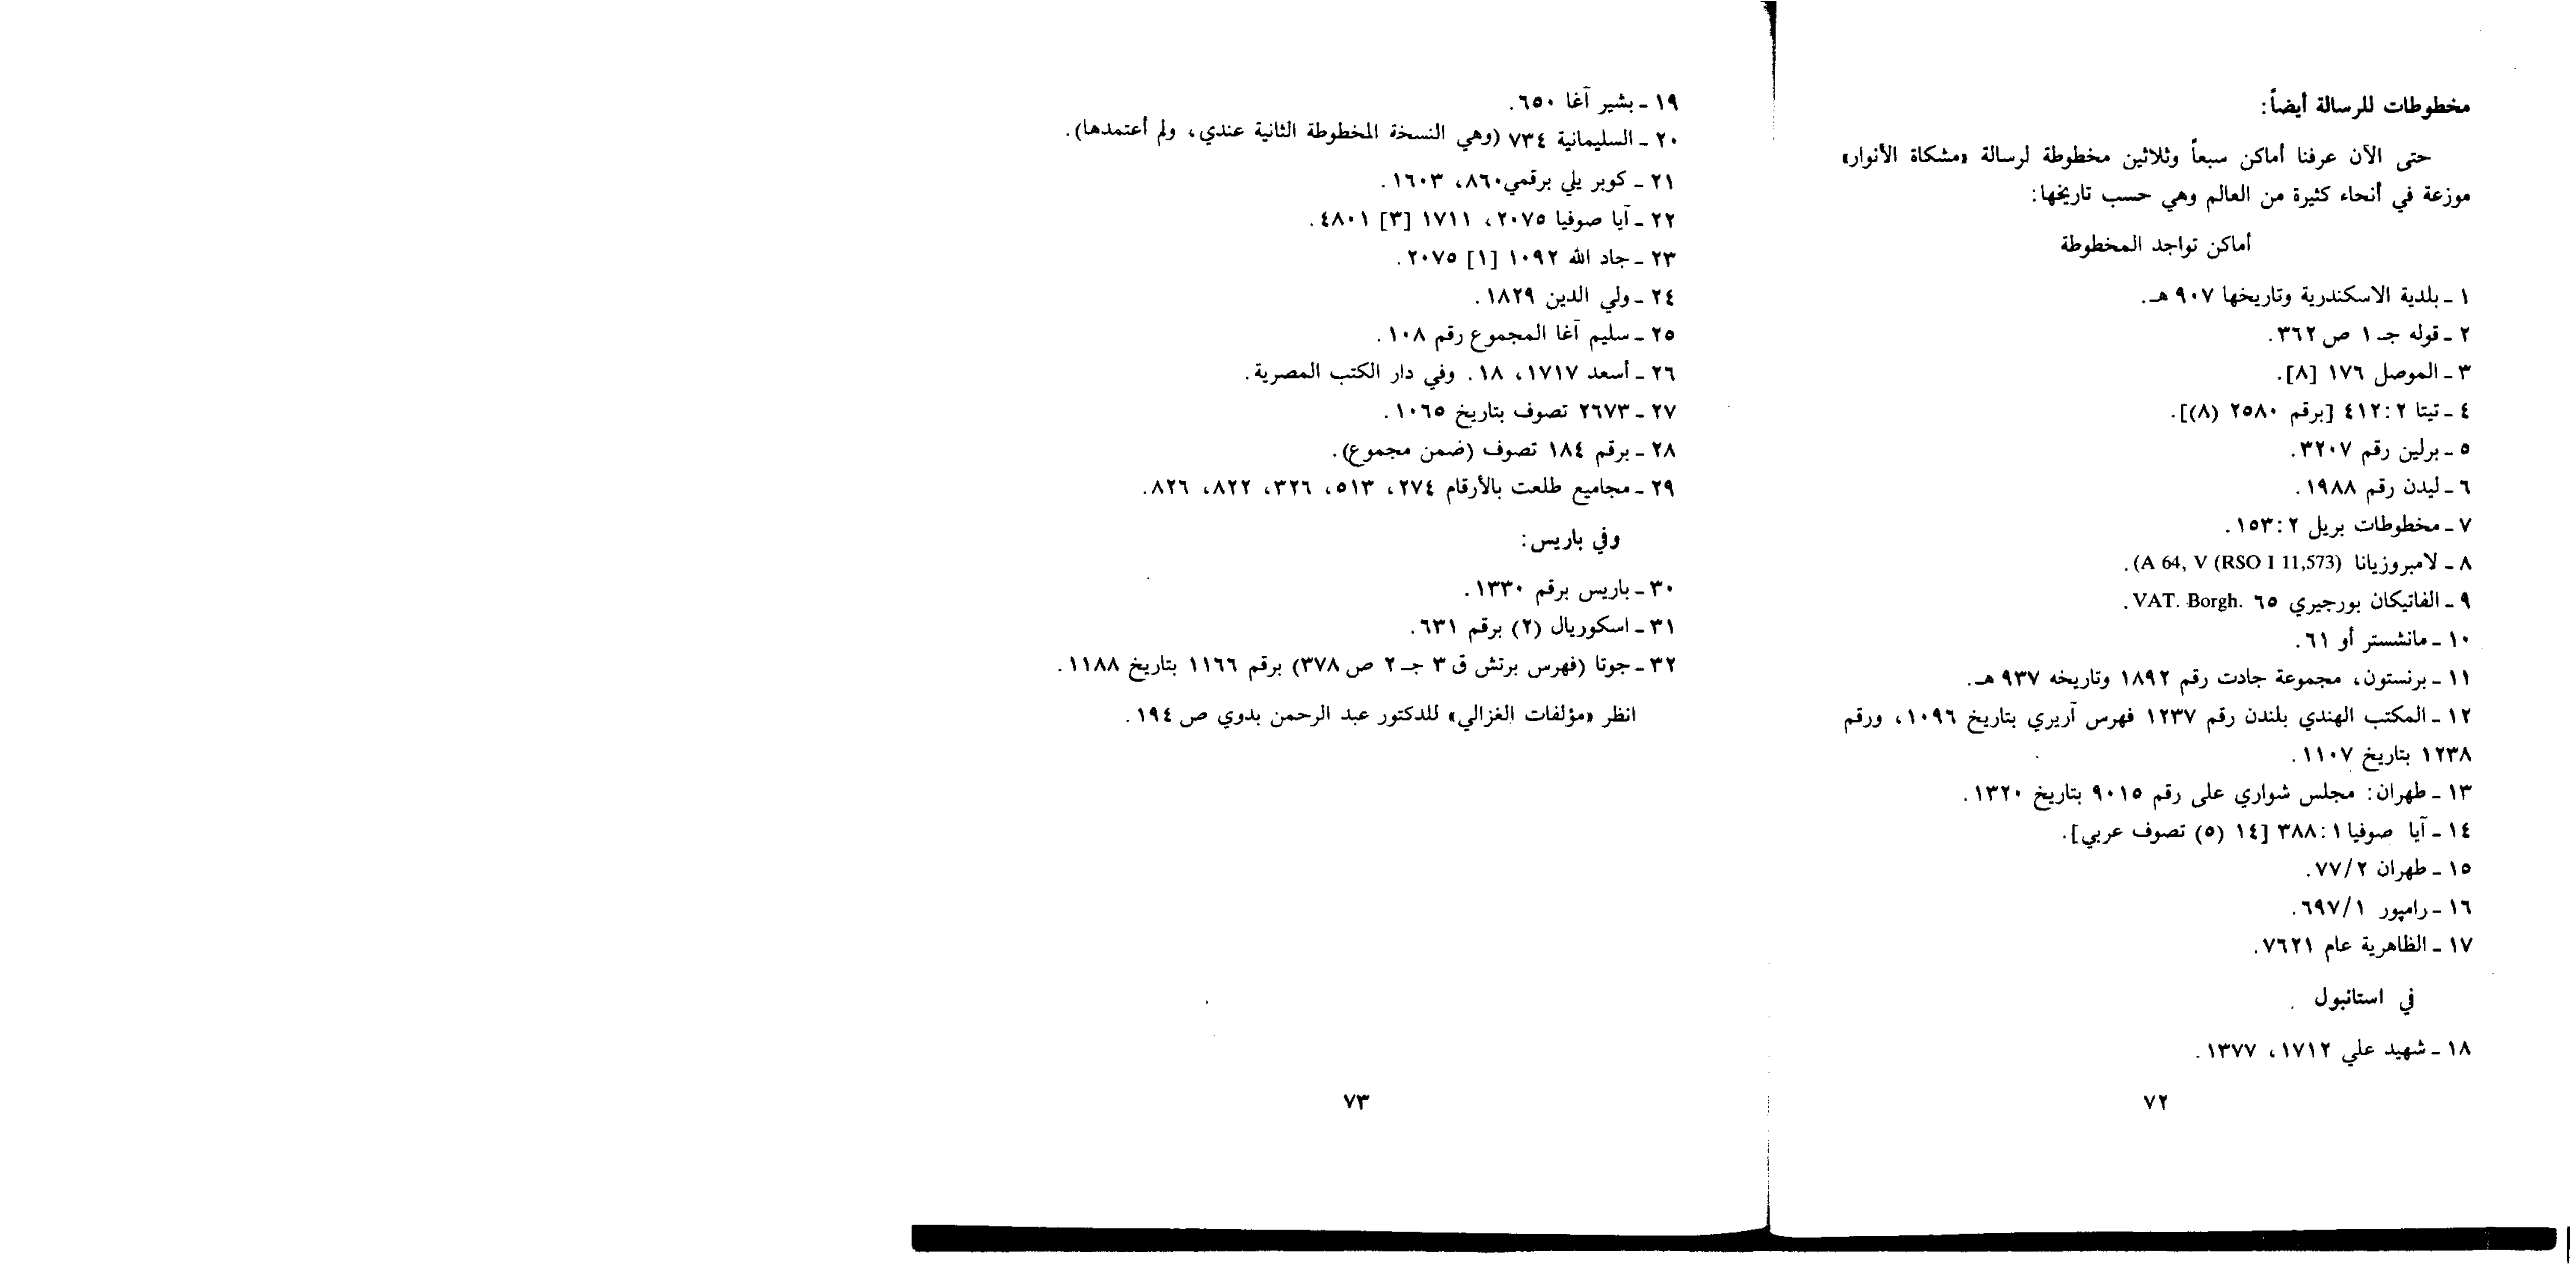 مخطوطات للرسالة أيضاً:
حتى الآن عرفنا أماكن سبعاً وثلاثين مخطوطة لرسالة «مشكاة الأنوار»
موزعة في أنحاء كثيرة من العالم وهي حسب تاريخها:
أماكن تواجد المخطوطة
١ - بلدية الاسكندرية وتاريخها ٩٠٧ هـ.
٢ - قوله جـ ١ ص ٣٦٢.
٣ - الموصل ١٧٦ [٨].
٤ - تيتا ٢:٤١٢ [برقم ٢٥٨٠ (٨)].
٥ - برلين رقم ٣٢٠٧.
٦ - ليدن رقم ١٩٨٨.
٧ - مخطوطات بريل ٢:١٥٣.
٨ - لامبروزيانا (A 64, V (RSO I 11,573).
٩ - الفاتيكان بورجيري ٦٥ VAT. Borgh.
١٠ - مانشستر أو ٦١.
١١ - برنستون، مجموعة جادت رقم ١٨٩٢ وتاريخه ٩٣٧ هـ.
١٢ - المكتب الهندي بلندن رقم ١٢٣٧ فهرس آربري بتاريخ ١٠٩٦، ورقم
١٢٣٨ بتاريخ ١١٠٧.
١٣ - طهران: مجلس شواري على رقم ٩٠١٥ بتاريخ ١٣٢٠.
١٤ - آيا صوفيا ١:٣٨٨ [١٤ (٥) تصوف عربي].
١٥ - طهران ٧٧/٢.
١٦ - رامپور ٦٩٧/١.
١٧ - الظاهرية عام ٧٦٢١.
في استانبول
١٨ - شهيد علي ١٧١٢، ١٣٧٧.
٧٢
١٩ - بشير آغا ٦٥٠.
٢٠ - السليمانية ٧٣٤ (وهي النسخة المخطوطة الثانية عندي، ولم أعتمدها).
٢١ - كوبر يلي برقمي ٨٦٠، ١٦٠٣.
٢٢ - آيا صوفيا ٢٠٧٥، ١٧١١ [٣] ٤٨٠١.
٢٣ - جاد الله ١٠٩٢ [١] ٢٠٧٥.
٢٤ - ولي الدين ١٨٢٩.
٢٥ - سليم آغا المجموع رقم ١٠٨.
٢٦ - أسعد ١٧١٧، ١٨. وفي دار الكتب المصرية.
٢٧ - ٢٦٧٣ تصوف بتاريخ ١٠٦٥.
٢٨ - برقم ١٨٤ تصوف (ضمن مجموع).
٢٩ - مجاميع طلعت بالأرقام ٢٧٤، ٥١٣، ٣٢٦، ٨٢٢، ٨٢٦.
وفي باريس:
٣٠ - باريس برقم ١٣٣٠.
٣١ - اسكوريال (٢) برقم ٦٣١.
٣٢ - جوتا (فهرس برتش ق ٣ جـ ٢ ص ٣٧٨) برقم ١١٦٦ بتاريخ ١١٨٨.
انظر «مؤلفات الغزالي» للدكتور عبد الرحمن بدوي ص ١٩٤.
٧٣